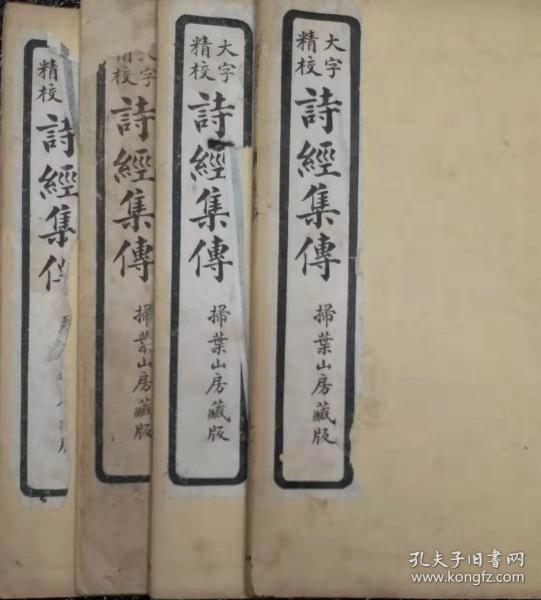 大字
精校
詩經集傳
掃葉山房藏版
大字
精校
詩經集傳
掃葉山房藏版
字
精校
詩經集傳
掃葉山房藏版
精校
詩經集
孔夫子旧书网
www.kongfz.com